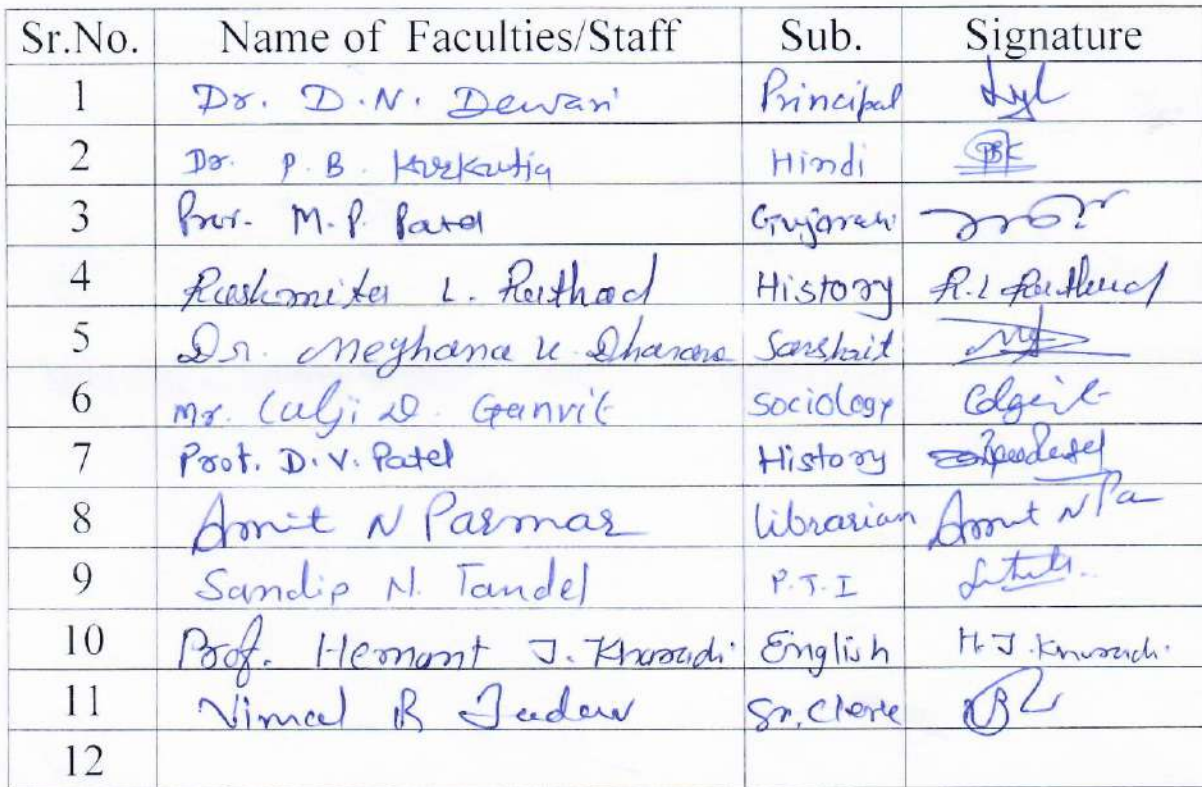 Sr.No. Name of Faculties/Staff Sub. Signature
1 Dr. D.N. Dewan Principal
2 Dr. P. B. Hindi PBK
3 Prof. M.P. Patel Gujarati
4 Rashmita L. Rathod History R.L Rathod
5 Dr. Meghana Sanskrit
6 Mr. Lalji D. Ganvit Sociology
7 Prof. D.V. Patel History
8 Amit N Parmar Librarian Amit N Pa
9 Sandip N. Tandel P.T.I
10 Prof. Hemant J. Kharadi English H J. Kharadi.
11 Vimal B Jadav Sr. Clerk
12